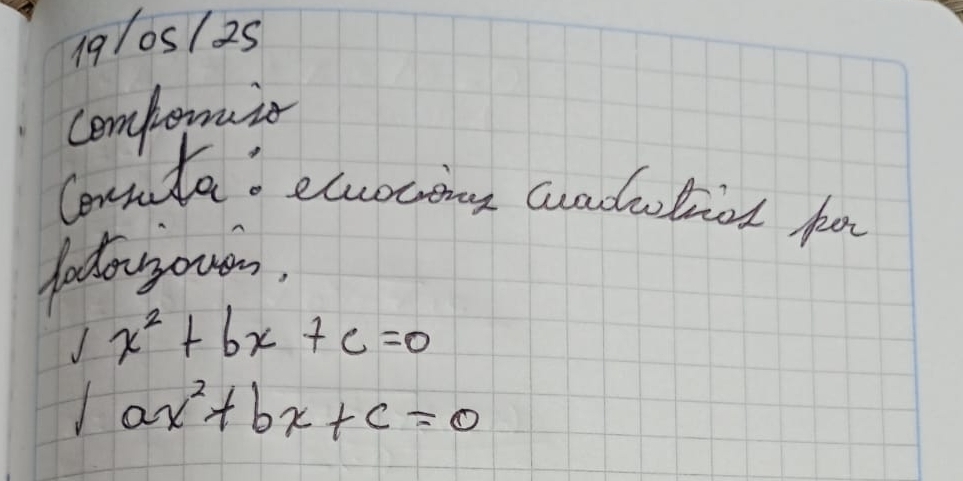 19/05/25
Compromiso
Consulta: ecuaciones cuadráticas por
factorización.
✓ x² + bx + c = 0
✓ ax² + bx + c = 0